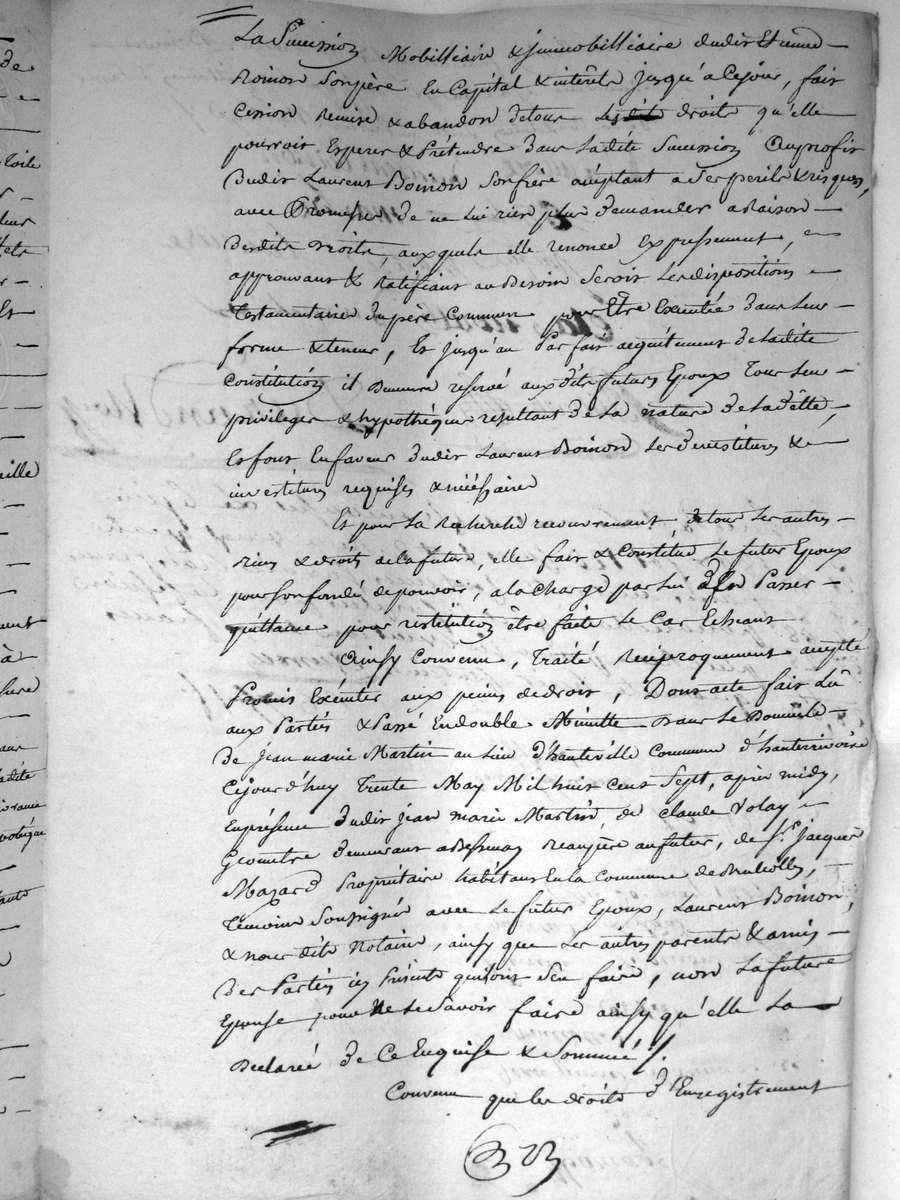 La Succession Mobilliaire & immobilliaire dudit Etienne
Boinon son père en Capital & intérêts jusqu'à ce jour, fait
Cession Remise & abandon de tous les dits droits qu'elle
pourroit Esperer & Prétendre dans ladite Succession Au profit
Dudit Laurent Boinon son frère acceptant a ses perils & risques,
avec Promesse de ne lui rien plus demander a Raison
Desdits Droits, auxquels elle renonce Expressement,
approuvant & Ratifiant au Besoin seroit les dispositions
Testamentaire du père Commun pour Être Executée dans leur
forme & teneur, Et jusqu'au Parfait acquittement de ladite
Constitution il Demeure reservé aux dits futurs Epoux Tous leur
privileges & hypothèques resultant de la nature de la dette,
Et font En faveur dudit Laurent Boinon les devestitures &
investitures requises & nécessaires
Et pour la Recherche recouvrement de tous les autres
biens & droits de la future, elle fait & Constitue le futur Epoux
pour son fondé de pouvoir, a la Charge par lui d'En Passer
quittance pour restitution être faite le Cas Echeant
Ainsy Convenu, Traité Réciproquement accepté
Promis Exécuter aux peines de droit, Dont acte fait Lû
aux Parties & Passé En double Minutte dans le Domicile
De jean marie Martin au lieu d'hauteville Commune d'hauterivoire
Cejourd'huy Trente May Mil huit cent Sept, après midy,
En présence dudit jean marie Martin, de claude Volay
Geomêtre demeurant a Bessenay Beaupère au futur, de Sr. jacques
Mazard Propriétaire habitant En la Commune de
Temoins Soussignés avec le futur Epoux, Laurent Boinon,
& nous dits Notaire, ainsy que les autres parents & amis
Des Parties icy Présents qui sont Sçu faire, non la future
Epouse pour Ne le Savoir faire ainsy qu'elle la
Declaré de Ce Enquise & Sommée ./.
Convenu que les droits d'Enregistrement